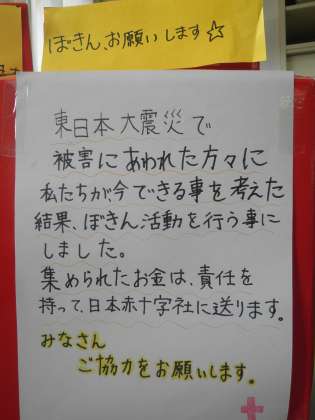 ぼきん、お願いします☆
東日本大震災で
被害にあわれた方々に
私たちが、今できる事を考えた
結果、ぼきん活動を行う事に
しました。
集められたお金は、責任を
持って、日本赤十字社に送ります。
みなさん
ご協力をお願いします。